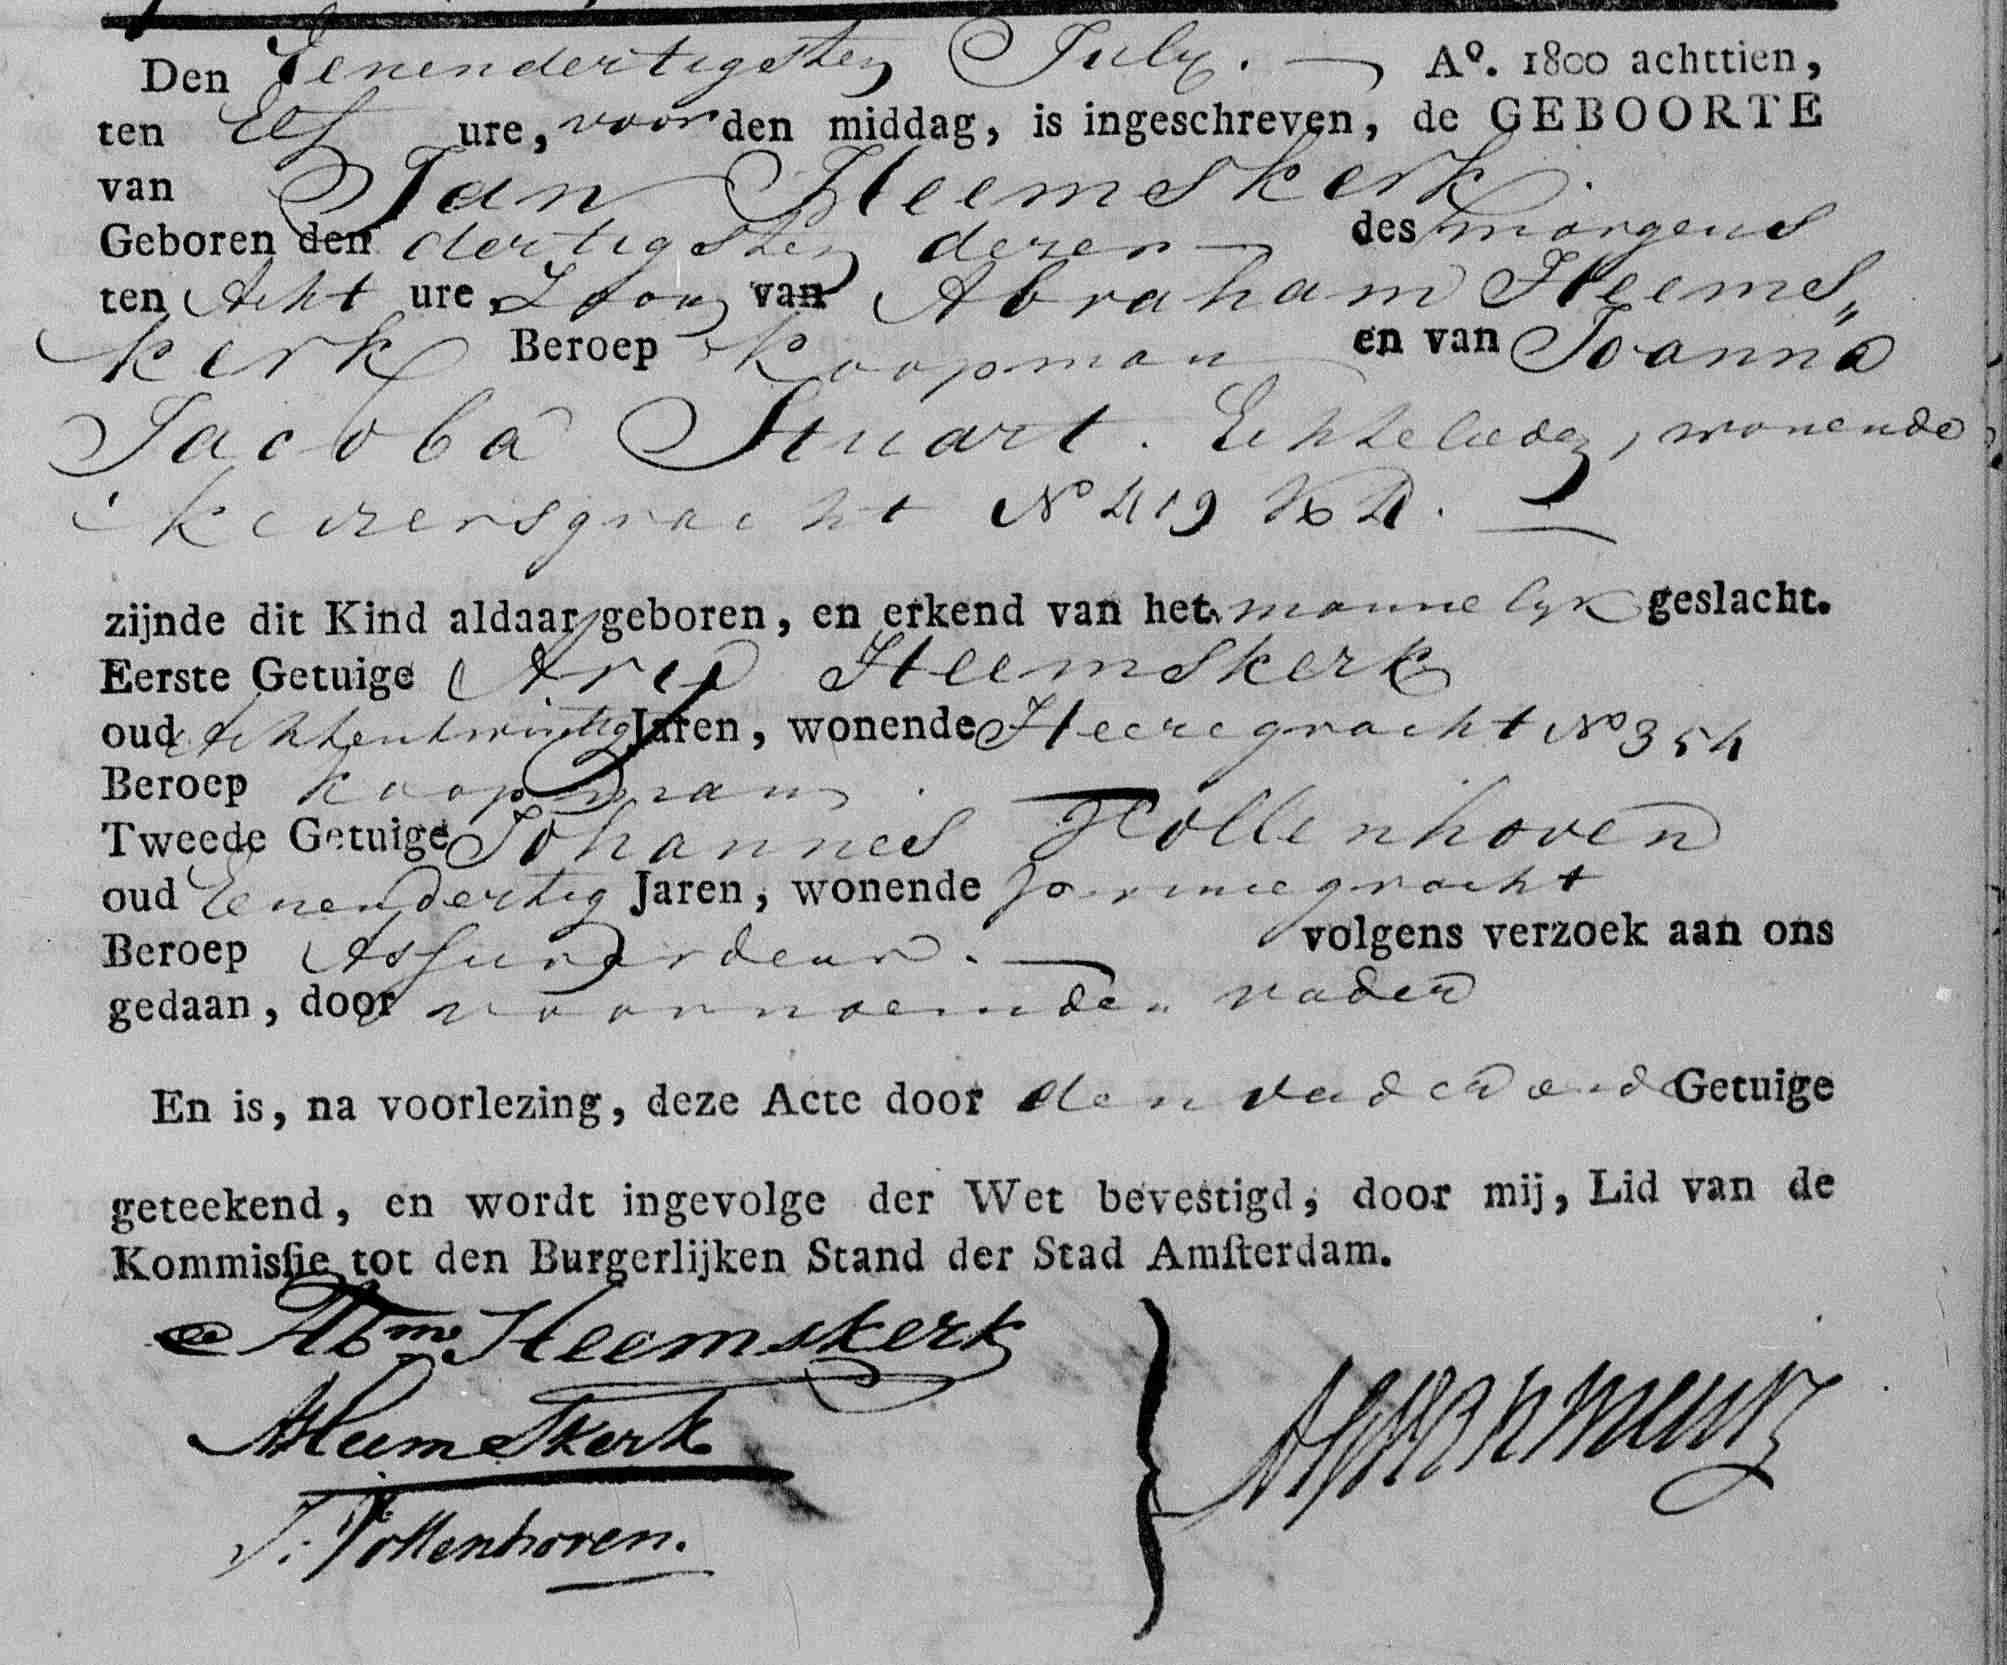 Den Eenendertigsten July. — Aº. 1800 achttien,
ten Elf ure, voor den middag, is ingeschreven, de GEBOORTE
van Jan Heemskerk.
Geboren den dertigsten dezer — des morgens
ten Acht ure Zoon van Abraham Heems„
kerk Beroep Koopman en van Joanna
Jacoba Stuart. Echtelieden, wonende
Keizersgracht Nº 419
zijnde dit Kind aldaar geboren, en erkend van het mannelyk geslacht.
Eerste Getuige Arij Heemskerk
oud Achtentwintig Jaren, wonende Heeregracht Nº 354
Beroep koopman.
Tweede Getuige Johannes Hollenhoven
oud Eenendertig Jaren, wonende gracht
Beroep Assuradeur. — volgens verzoek aan ons
gedaan, door voornoemden vader
En is, na voorlezing, deze Acte door den vader en de Getuige
geteekend, en wordt ingevolge der Wet bevestigd, door mij, Lid van de
Kommisſie tot den Burgerlijken Stand der Stad Amſterdam.
Abm Heemskerk
A Heemskerk
J. Vollenhoven.